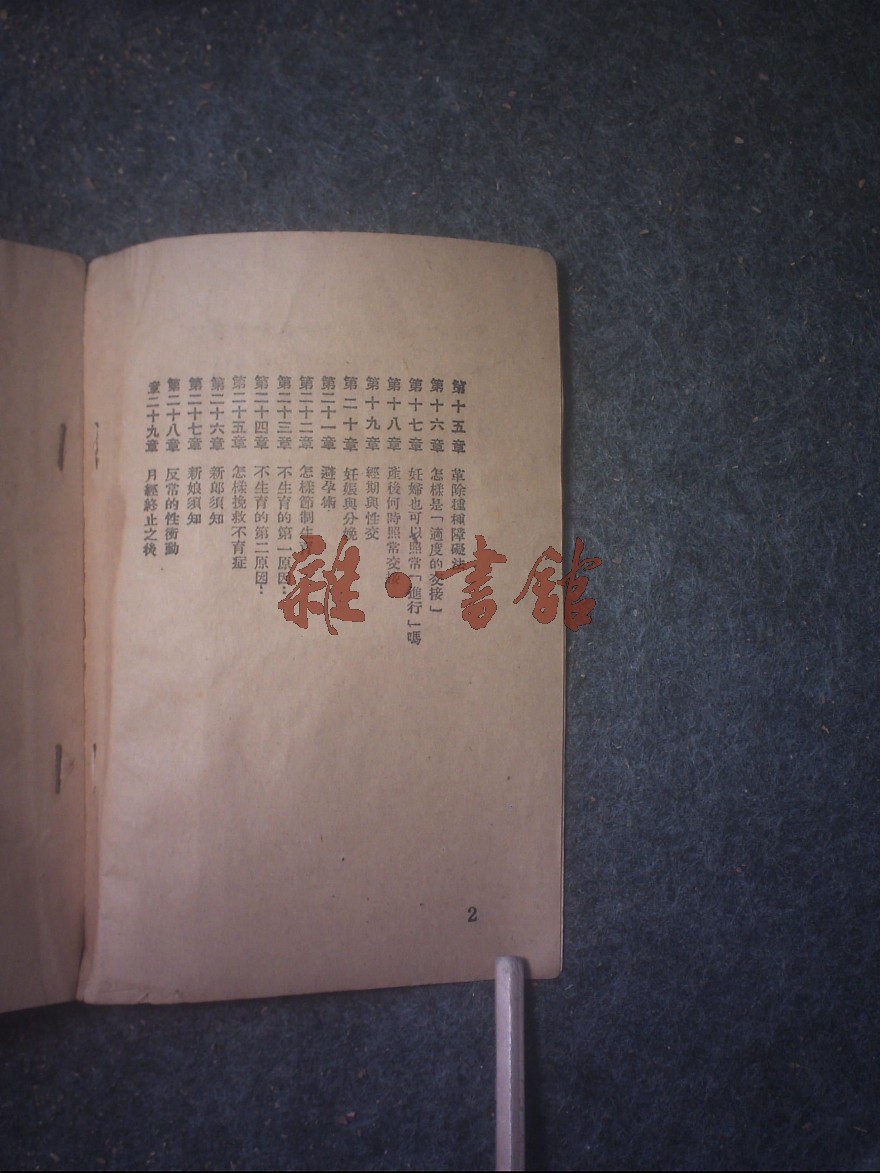 第十五章 革除種種障礙法
第十六章 怎樣是「適度的交接」
第十七章 妊婦也可以照常「進行」嗎
第十八章 產後何時照常交接
第十九章 經期與性交
第二十章 妊娠與分娩
第二十一章 避孕術
第二十二章 怎樣節制生
第二十三章 不生育的第一原因…
第二十四章 不生育的第二原因…
第二十五章 怎樣挽救不育症
第二十六章 新郎須知
第二十七章 新娘須知
第二十八章 反常的性衝動
章二十九章 月經終止之後
2
雜·書館